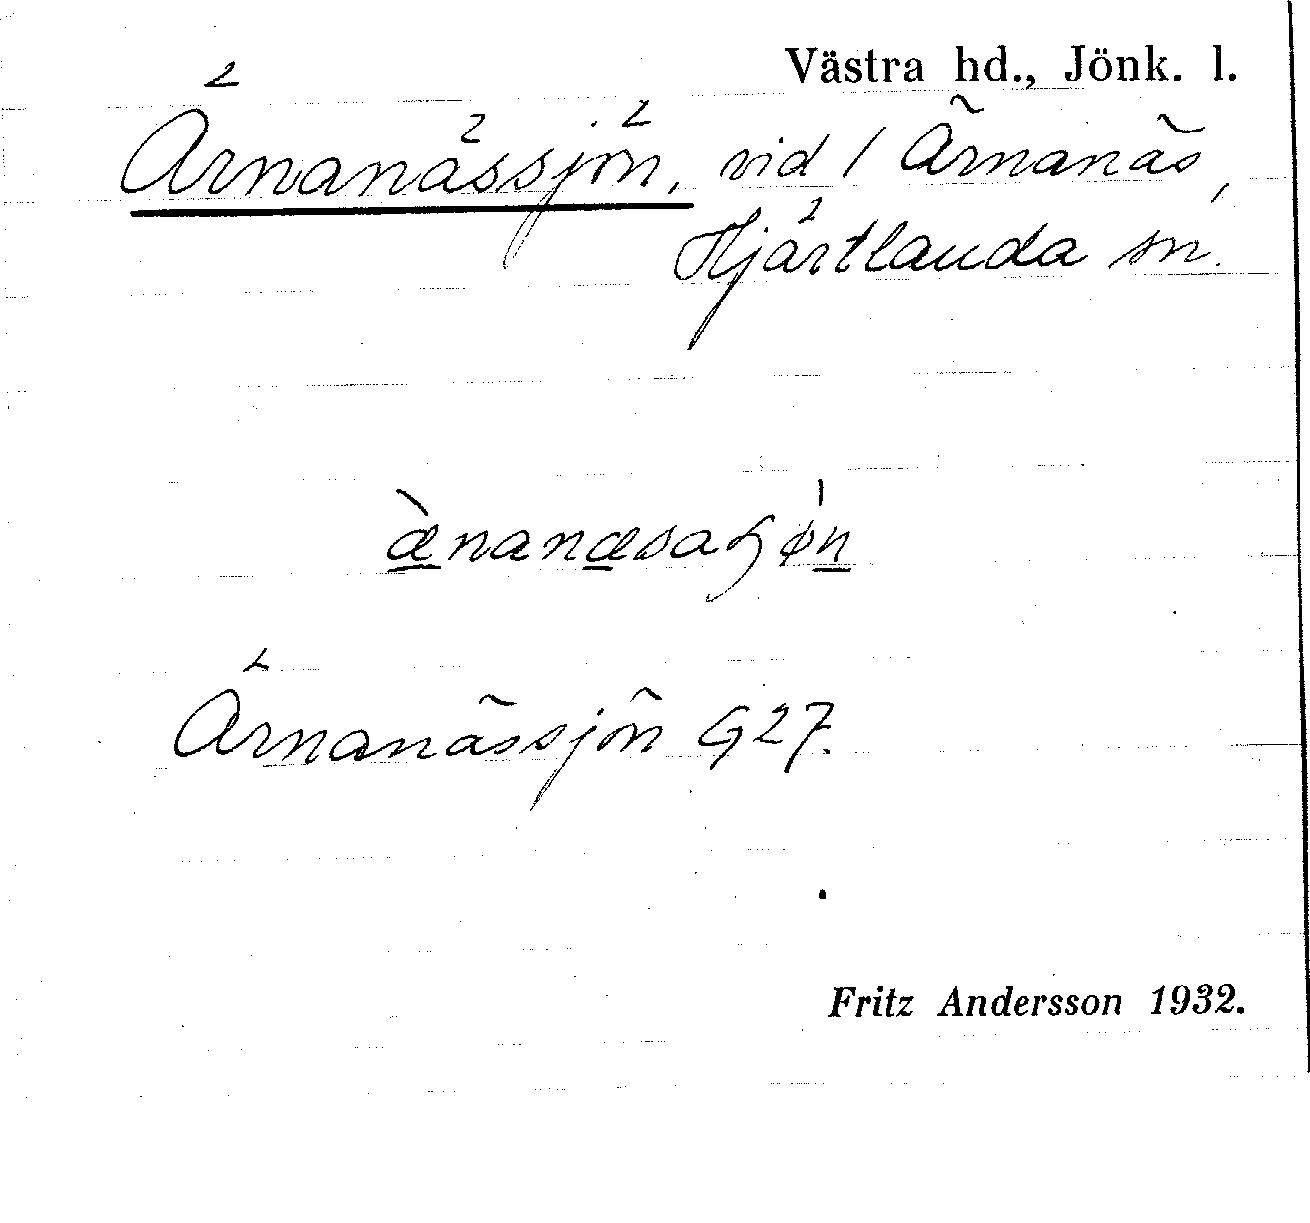 Västra hd., Jönk. l.
Ärnanässjön, vid / Ärnanäs,
Hjärtlanda sn.
Ärnanässjön G27.
Fritz Andersson 1932.